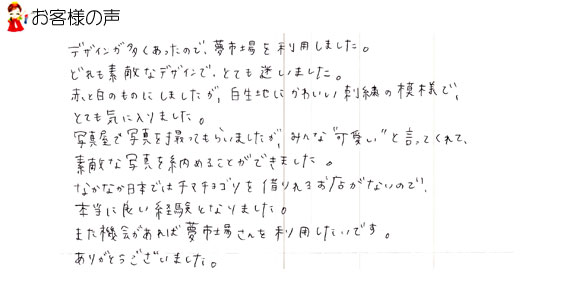 お客様の声
デザインが多くあったので、夢市場を利用しました。
どれも素敵なデザインで、とても迷いました。
赤と白のものにしましたが、白生地にかわいい刺繍の模様で、
とても気に入りました。
写真屋で写真を撮ってもらいましたが、みんな"可愛い"と言ってくれて、
素敵な写真を納めることができました。
なかなか日本ではチマチョゴリを借りれるお店がないので、
本当に良い経験となりました。
また機会があれば夢市場さんを利用したいです。
ありがとうございました。